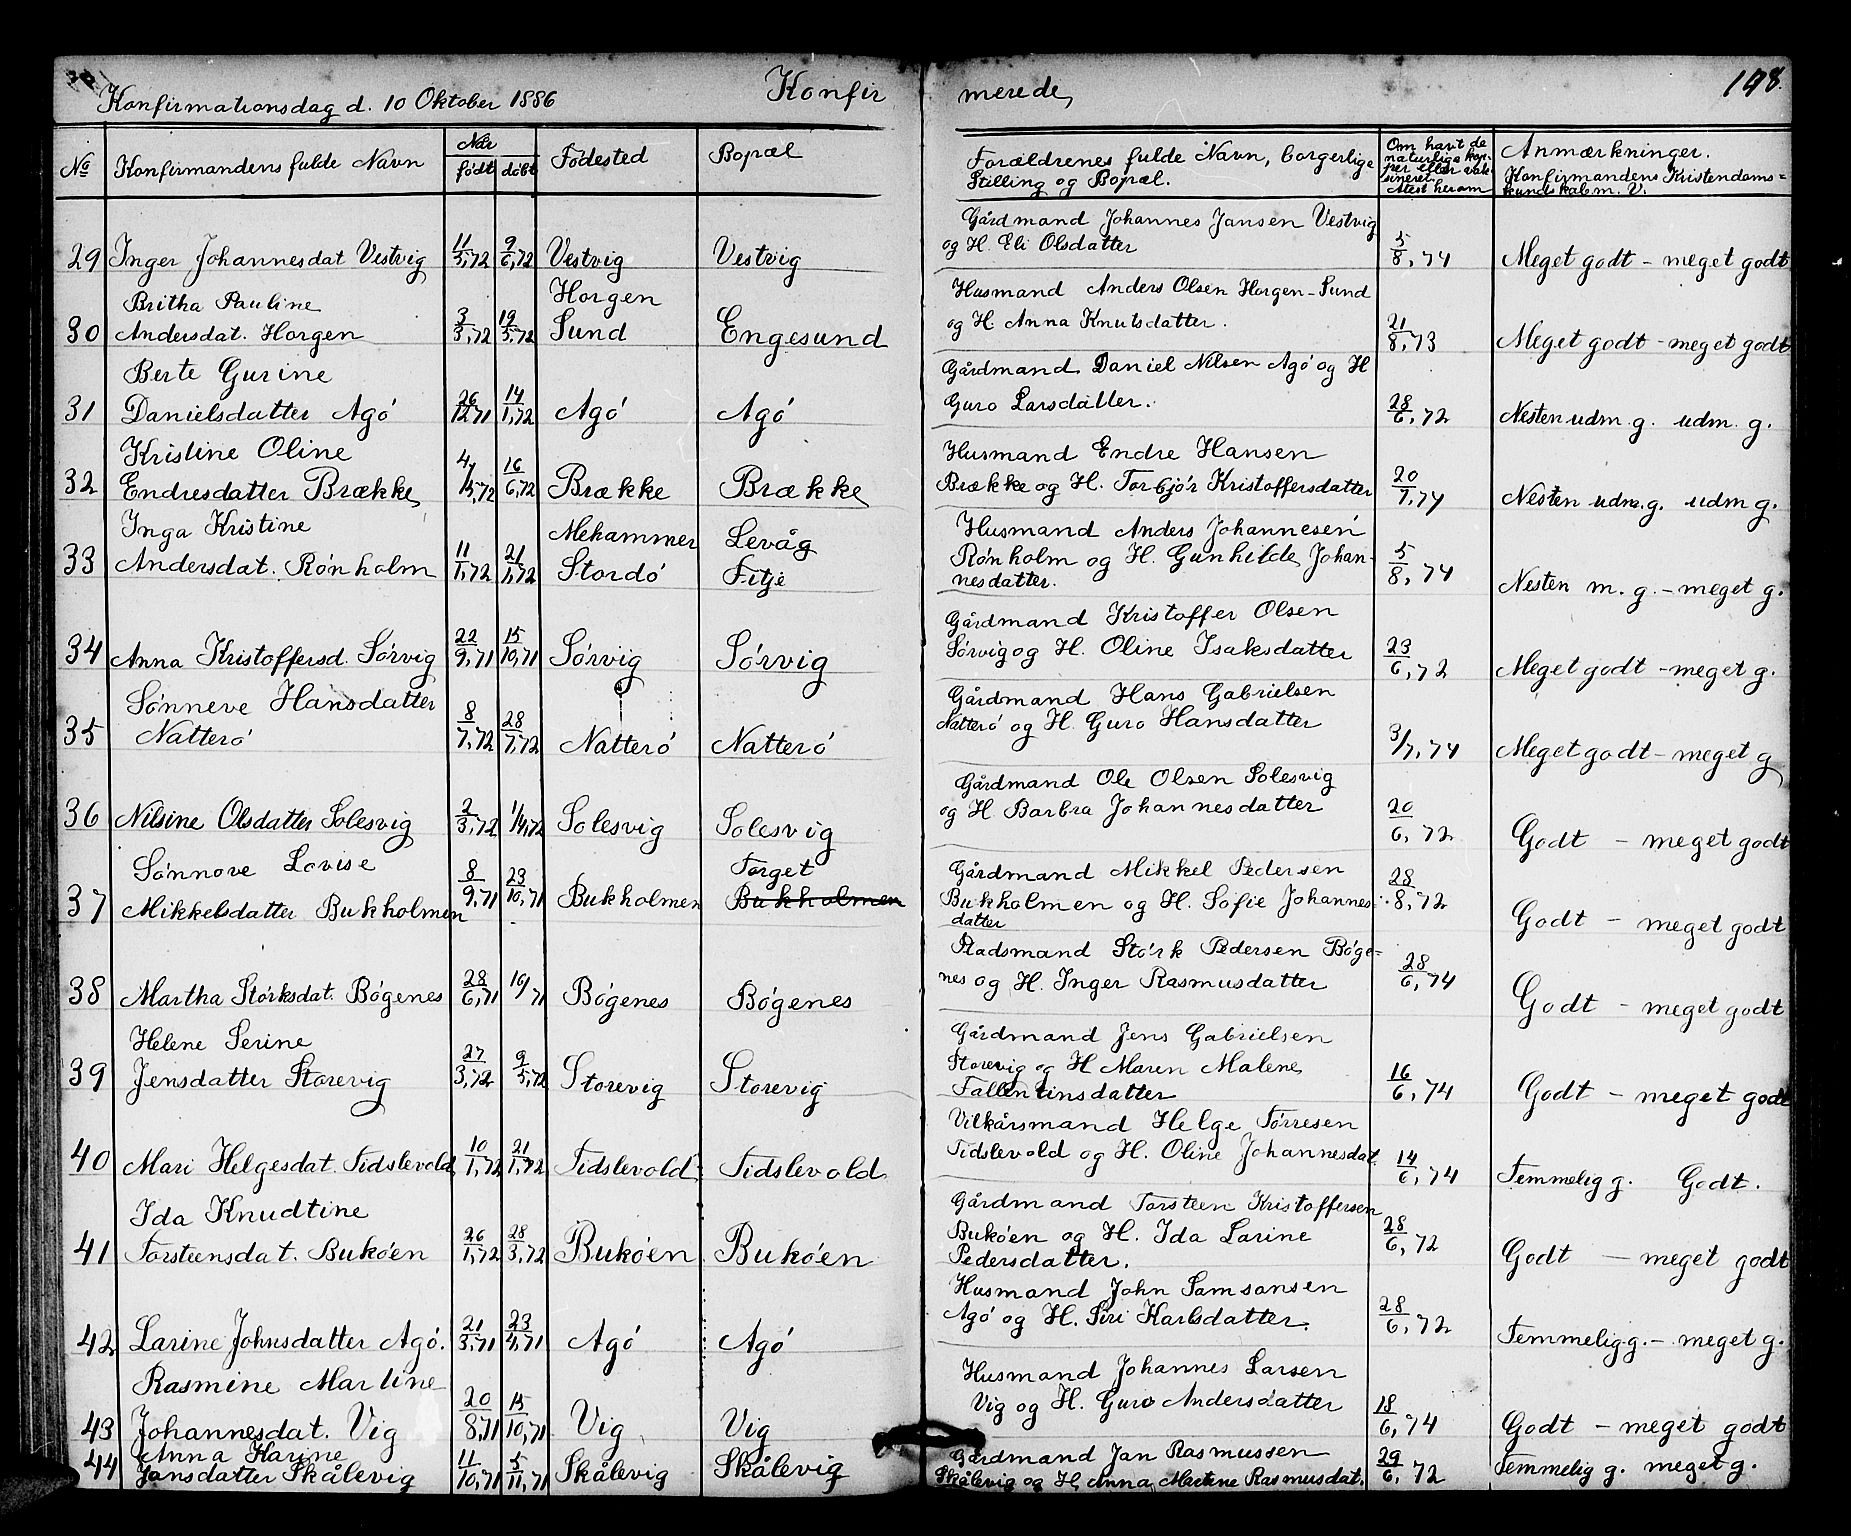 Konfirmationsdag d. 10 Oktober 1886 Konfir merede, 148.
No Konfirmandens fulde Navn Når født døbt Fødested Bopæl Forældrenes fulde Navn, borgerlige Stilling og Bopæl. Om havt de naturlige kopper eller vaksineret. Attest herom Anmærkninger. Konfirmandens Kristendomskundskab m. V.
Gårdmand Johannes Jansen Vestvig
29 Inger Johannesdat Vestvig 11/5,72 9/6,72 Vestvig Vestvig og H. Eli Olsdatter 5/8,74 Meget godt - meget godt
Britha Pauline Horgen Husmand Anders Olsen Horgen-Sund
30 Andersdat. Horgen 3/3,72 19/5,72 Sund Engesund og H Anna Knutsdatter. 21/8,73 Meget godt - meget godt
Berte Gurine Gårdmand Daniel Nilsen Agó og H
31 Danielsdatter Agó 26/12 71 14/1,72 Agó Agó Guro Larsdatter. 28/6,72 Nesten udm. g. udm. g.
Kristine Oline Husmand Endre Hansen
32 Endresdatter Brække 4/5,72 16/6,72 Brække Brække Brække og H. Torbjór Kristoffersdatter 20/7,74 Nesten udm. g. udm g.
Inga Kristine Mehammer Levåg Husmand Anders Johannesen
33 Andersdat. Rónholm 11/1,72 21/1,72 Stordó Fitje Rónholm og H. Gunhilde Johan-
nesdatter. 5/8,74 Nesten m. g. - meget g.
Gårdmand Kristoffer Olsen
34 Anna Kristoffersd. Sórvig 22/9,71 15/10,71 Sórvig Sórvig Sórvig og H. Oline Isaksdatter 23/6,72 Meget godt - meget g.
Sónneve Hansdatter Gårdmand Hans Gabrielsen
35 Natteró 8/7,72 28/7,72 Natteró Natteró Natteró og H. Guro Hansdatter 3/7,74 Meget godt - meget g
Gårdmand Ole Olsen Solesvig
36 Nilsine Olsdatter Solesvig 2/3,72 1/4,72 Solesvig Solesvig og H Barbra Johannesdatter 20/6,72 Godt - meget godt
Sónnove Lovise Torget Gårdmand Mikkel Pedersen
37 Mikkelsdatter Bukholmen 8/9,71 23/10,71 Bukholmen Bukholmen Bukholmen og H. Sofie Johannes-
datter 28/8,72 Godt - meget godt
Pladsmand Stórk Pedersen Bóge-
38 Martha Stórksdat. Bógenes 28/6,71 19/71 Bógenes Bógenes nes og H. Inger Rasmusdatter 28/6,74 Godt - meget godt
Helene Serine Gårdmand Jens Gabrielsen
39 Jensdatter Storevig 27/3,72 9/5,72 Storevig Storevig Storevig og H Maren Malene
Fallentinsdatter 16/6,74 Godt - meget godt
Vilkårsmand Helge Tórresen
40 Mari Helgesdat. Tidslevold 10/1,72 21/1,72 Tidslevold Tidslevold Tidslevold og H. Oline Johannesdat. 14/6,74 Temmelig g. Godt.
Ida Knudtine Gårdmand Torsteen Kristoffersen
41 Torsteensdat. Bukóen 26/1,72 28/3,72 Bukóen Bukóen Bukóen og H. Ida Larine
Pedersdatter. 28/6,72 Godt - meget godt
Husmand John Samsonsen
42 Larine Johnsdatter Agó. 21/3,71 23/4,71 Agó Agó Agó og H. Siri Karlsdatter. 28/6,72 Temmelig g. - meget g.
Rasmine Martine Husmand Johannes Larsen
43 Johannesdat. Vig 20/8,71 15/10,71 Vig Vig Vig og H. Guro Andersdatter 18/6,74 Godt - meget godt
Anna Karine Gårdmand Jan Rasmussen
44 Jansdatter Skålevig 11/10,71 5/11,71 Skålevig Skålevig Skålevig og H. Anna Martine Rasmusdat. 29/6,72 Temmelig g. meget g.